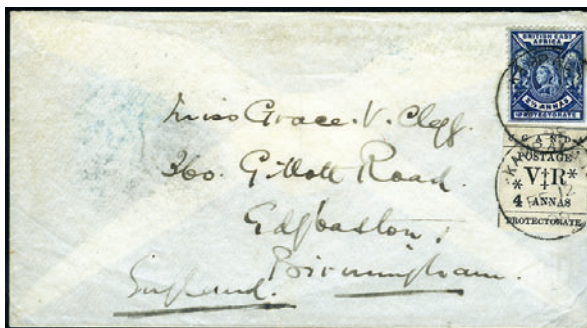 BRITISH EAST
AFRICA
2½ ANNAS
PROTECTORATE
POSTAGE
* V‡R *
4 ANNAS
PROTECTORATE
Miss Grace. V. Clegg.
360. Gillott Road.
Edgbaston,
Birmingham.
England.